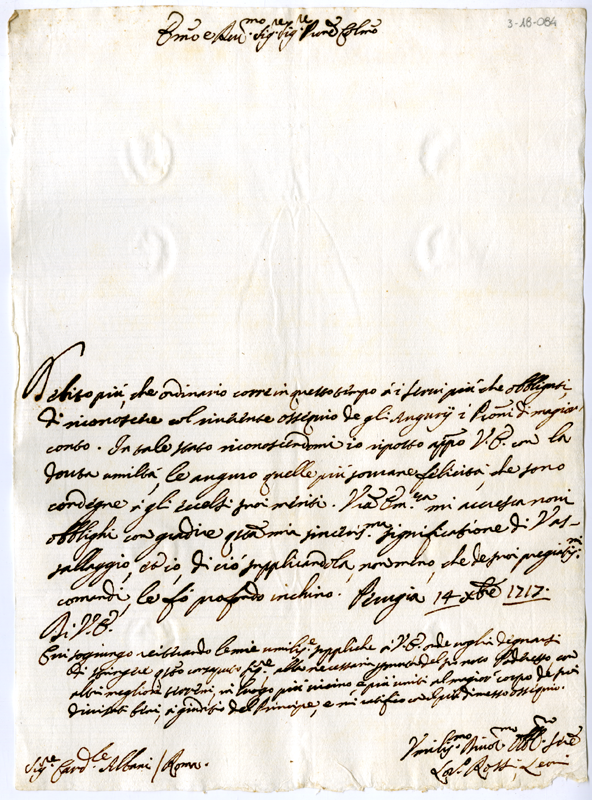 3-18-084
Em̃o e Reu.mo Sig.re Sig.re Prõne Col.mo
Debito più, che ordinario corre in questo tempo à i serui più che obbligati,
di riconoscere col riuerente ossequio de gli Augurÿ i Prõni di magior
conto. In tale stato riconoscendomi io riposto app.o V.E. con la
douuta umiltà, le auguro quelle più sourane felicità, che sono
condegne à gli eccelsi suoi meriti. V.ra Em.za mi accresca noui
obblighi con gradire q.ta mia sinceris.ma significatione di Vas-
sallaggio, et io di ciò supplicandola, non meno, che de suoi pregiatis.mi
comandi, le fò profondo inchino. Perugia 14 Xbre 1717.
Di V.E.
E mi soggiungo reiterando le mie umilis.e suppliche à V.E. onde uoglia degnarsi
di alla necessaria del noto con
altri megliori terreni, in luogo più uicino e più uniti al magior corpo de suoi
beni, à giuditio del Principe, e mi ratifico con ossequio.
Umilis.mo Diuot.mo Obb.mo Seru.e
Rossi Leoni
Sig.re Card.le Albani / Roma.